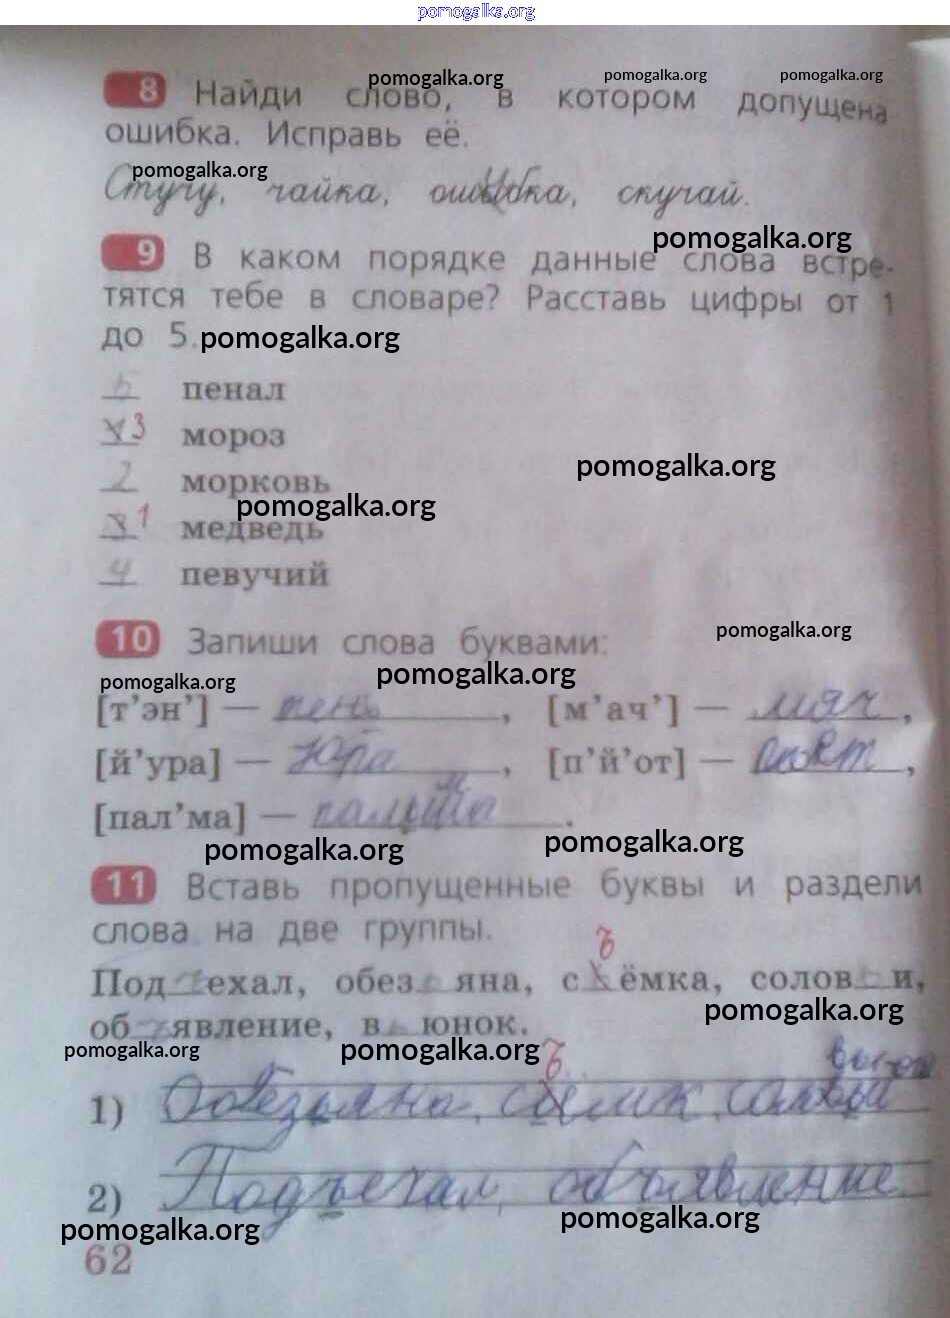 pomogalka.org
8 Найди слово, в котором допущена
pomogalka.org pomogalka.org pomogalka.org
ошибка. Исправь её.
pomogalka.org
Стучу, чайка, ошибка, скучай.
pomogalka.org
9 В каком порядке данные слова встре-
тятся тебе в словаре? Расставь цифры от 1
до 5. pomogalka.org
5 пенал
3 мороз
pomogalka.org
2 морковь
pomogalka.org
1 медведь
4 певучий
pomogalka.org
10 Запиши слова буквами:
pomogalka.org pomogalka.org
[т’эн’] — тень, [м’ач’] — мяч,
[й’ура] — Юра, [п’й’от] —
[пал’ма] — пальма.
pomogalka.org pomogalka.org
11 Вставь пропущенные буквы и раздели
слова на две группы.
ъ
Под ъ ехал, обез ь яна, с ёмка, солов ь и,
pomogalka.org
об ъ явление, в ь юнок.
pomogalka.org pomogalka.org ъ
1) Обезьяна,
2) Подъехал, объявление
pomogalka.org pomogalka.org
62